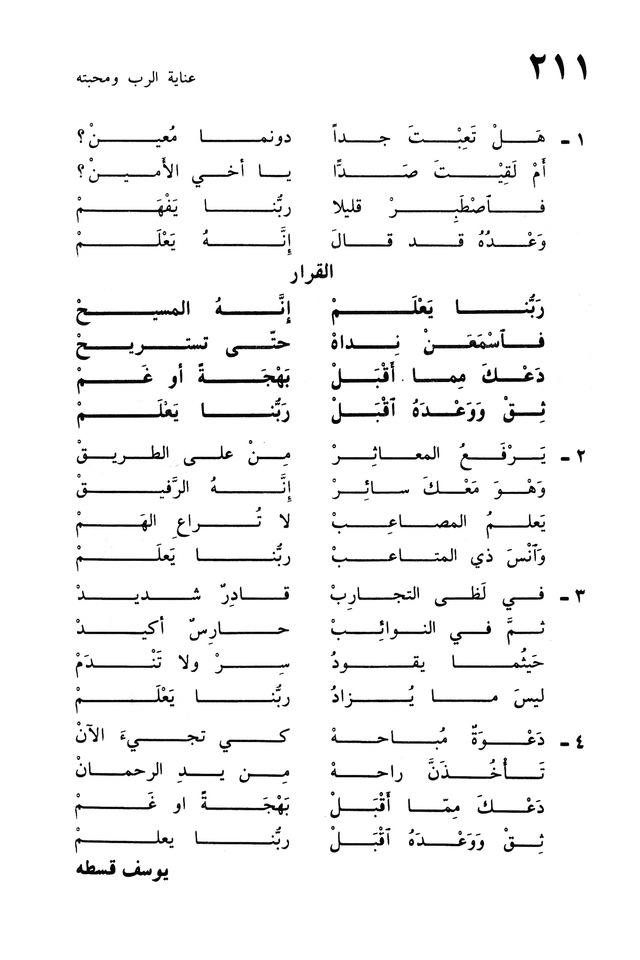 ٢١١
عناية الرب ومحبته
١ - هَلْ تَعِبْتَ جداً دونما مُعينْ؟
أمْ لَقِيْتَ صَدًّا يا أخي الأَمينْ؟
فٱصْطَبِرْ قليلا ربُّنا يَفْهَمْ
وَعْدُهُ قد قالَ إنَّهُ يَعْلَمْ
القرار
رَبُّنا يَعْلَمْ إنَّهُ المسيحْ
فٱسْمَعَنْ نِداهْ حتّى تستريحْ
دَعْكَ مِما أَقْبَلْ بَهْجَةً أو غَمْ
ثِقْ وَوَعْدَهُ ٱقْبَلْ رَبُّنا يَعْلَمْ
٢ - يَرْفَعُ المعاثِرْ مِنْ على الطريقْ
وَهْوَ مَعْكَ سائِرْ إنَّهُ الرَّفيقْ
يَعلمُ المصاعِبْ لا تُراعِ الهَمْ
وَٱنْسَ ذي المتاعبْ ربُّنا يَعلَمْ
٣ - في لَظى التجارِبْ قادِرٌ شديدْ
ثمَّ في النوائِبْ حارسٌ أكيدْ
حَيثُما يقودُ سِرْ ولا تَنْدَمْ
ليسَ ما يُزادُ ربُّنا يَعْلَمْ
٤ - دَعْوَةٌ مُباحه كي تجيءَ الآنْ
تَأْخُذَنَّ راحه مِن يدِ الرحمانْ
دَعكَ مِمّا أَقْبَلْ بَهْجَةً او غَمْ
ثِقْ وَوَعْدَهُ ٱقْبَلْ ربُّنا يعلمْ
يوسف قسطه